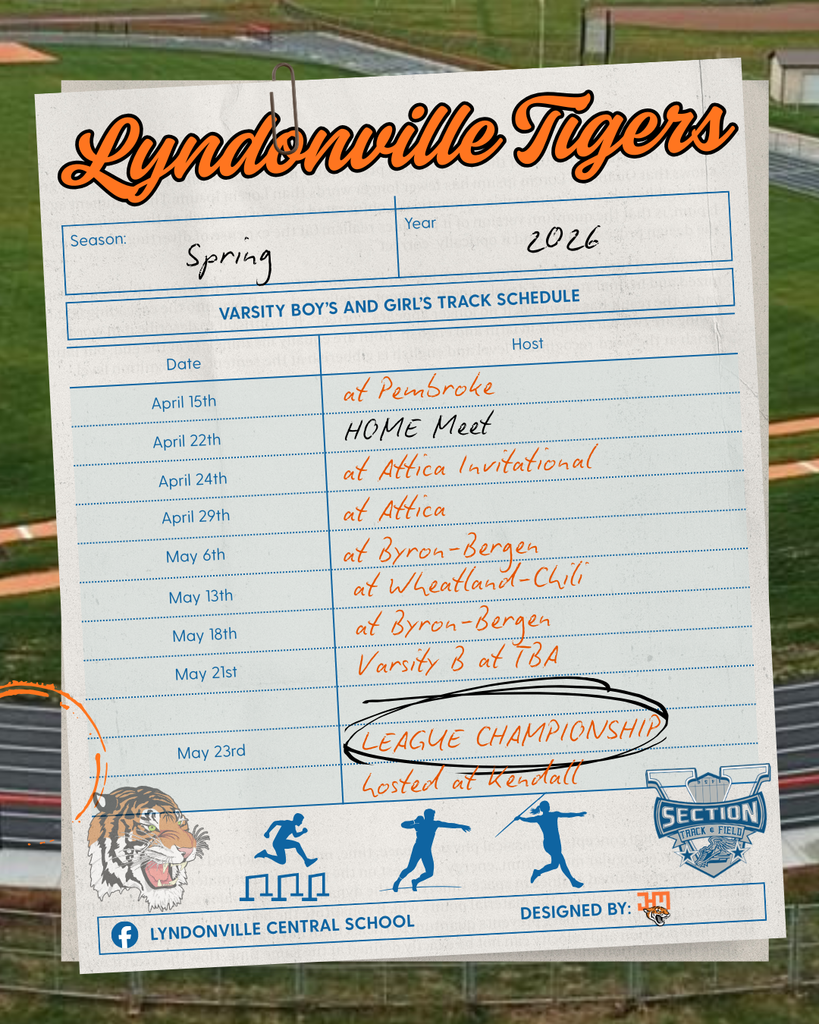 Lyndonville Tigers
Season: Spring
Year 2026
VARSITY BOY'S AND GIRL'S TRACK SCHEDULE
Date Host
April 15th at Pembroke
April 22th HOME Meet
April 24th at Attica Invitational
April 29th at Attica
May 6th at Byron-Bergen
May 13th at Wheatland-Chili
May 18th at Byron-Bergen
May 21st Varsity B at TBA
May 23rd LEAGUE CHAMPIONSHIP
hosted at Kendall
V
SECTION
TRACK & FIELD
LYNDONVILLE CENTRAL SCHOOL
DESIGNED BY: